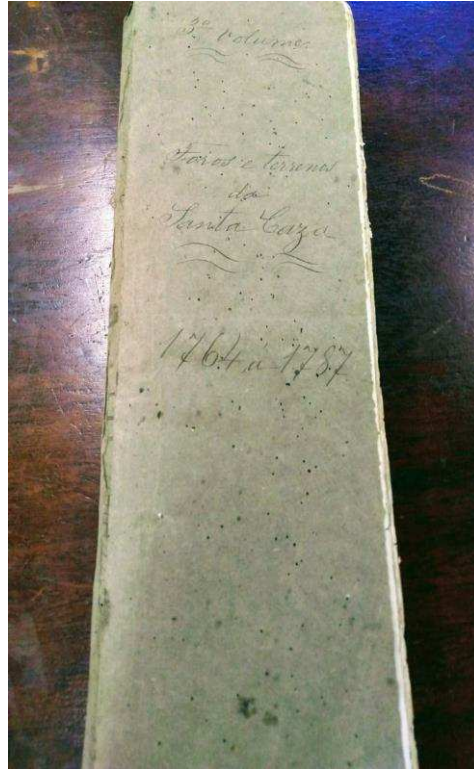 3º volume
Foros e terrenos
da
Santa Caza
1764 á 1787